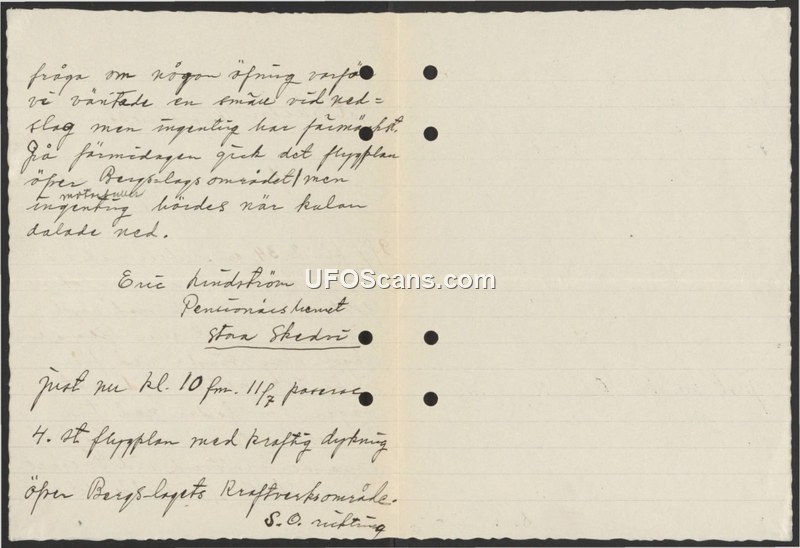 fråga om någon öfning varför
vi väntade en smäll vid ned=
slag men ingenting har förmärkt.
På förmidagen gick det flygplan
öfver Bergslags området/men
motorbuller
ingenting hördes när kulan
dalade ned.
Eric Lindström
Pensionärshemet
Stora Skedvi
just nu kl. 10 fm. 11/7 passerar
4. st flygplan med kraftig dykning
öfver Bergs-lagets Kraftverksområde.
S.O. riktning
UFOScans.com